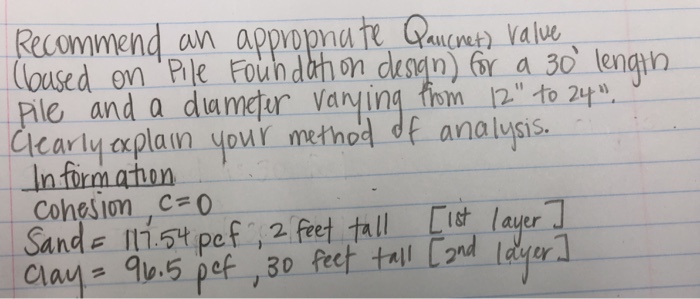 Recommend an appropriate Qall(net) value
(based on Pile Foundation design) for a 30' length
pile and a diameter varying from 12" to 24".
Clearly explain your method of analysis.
Information
Cohesion, c=0
Sand = 117.54 pcf, 2 feet tall [1st layer]
Clay = 96.5 pcf, 30 feet tall [2nd layer]